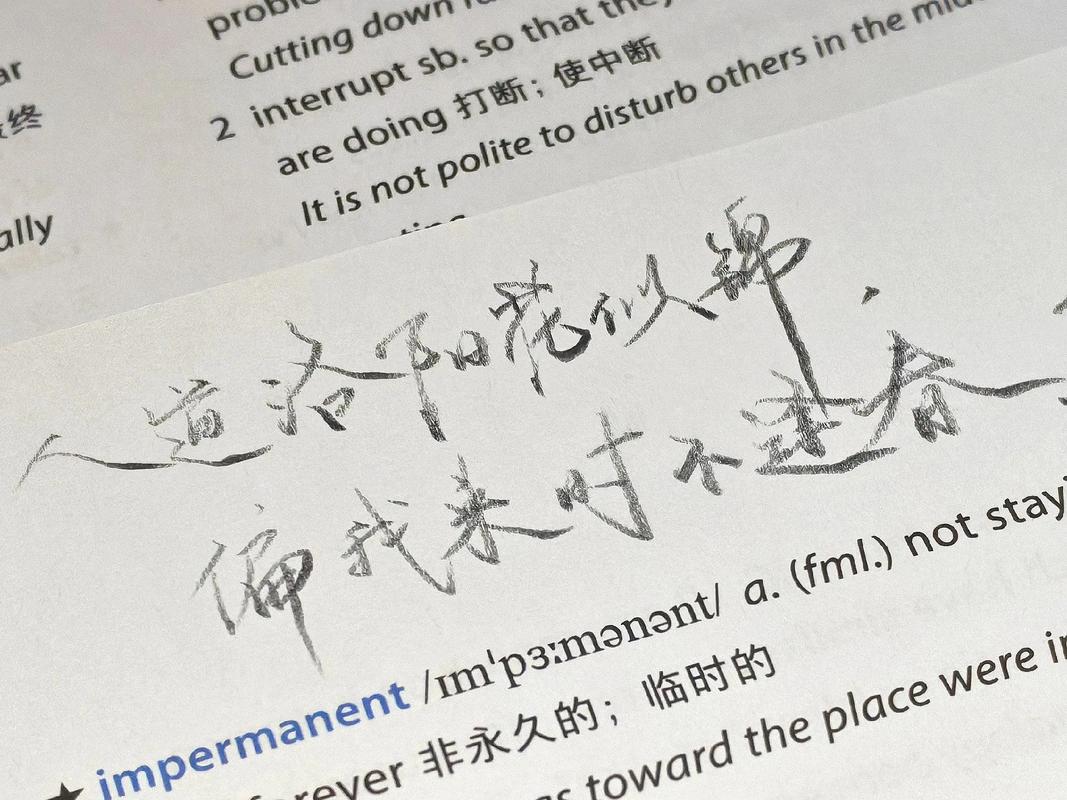 proble
Cutting down
2 interrupt sb. so that they
are doing 打断；使中断
It is not polite to disturb others in the mid
ar
终
ally
人道洛阳花似锦，
偏我来时不逢春
impermanent /ɪmˈpɜːmənənt/ a. (fml.) not stayi
forever 非永久的；临时的
toward the place were i